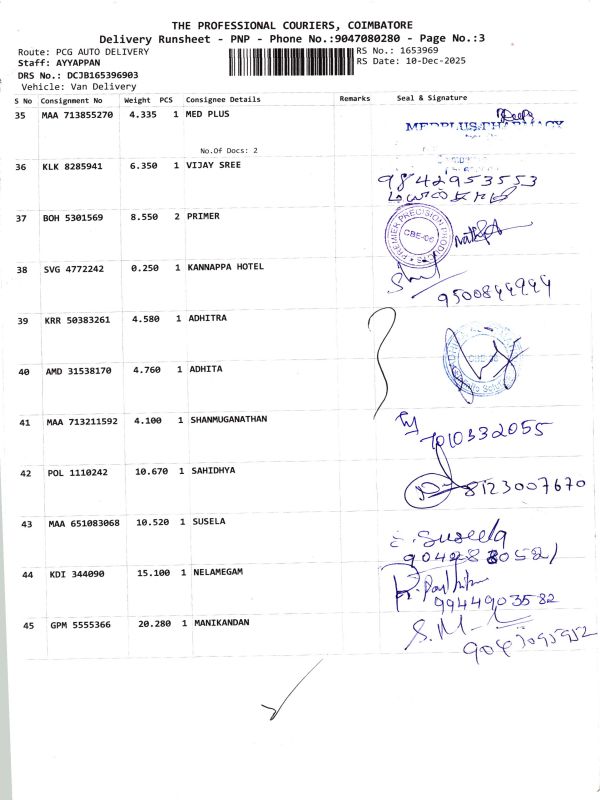 THE PROFESSIONAL COURIERS, COIMBATORE
Delivery Runsheet - PNP - Phone No.:9047080280 - Page No.:3
Route: PCG AUTO DELIVERY RS No.: 1653969
Staff: AYYAPPAN RS Date: 10-Dec-2025
DRS No.: DCJB165396903
Vehicle: Van Delivery
S No Consignment No Weight PCS Consignee Details Remarks Seal & Signature
35 MAA 713855270 4.335 1 MED PLUS
MEDPLUS PHARMACY
No.Of Docs: 2
36 KLK 8285941 6.350 1 VIJAY SREE
9842953553
37 BOH 5301569 8.550 2 PRIMER
PREMIER PRECISION PRODUCTS
CBE-06
38 SVG 4772242 0.250 1 KANNAPPA HOTEL
9500844944
39 KRR 50383261 4.580 1 ADHITRA
40 AMD 31538170 4.760 1 ADHITA
41 MAA 713211592 4.100 1 SHANMUGANATHAN
7010332055
42 POL 1110242 10.670 1 SAHIDHYA
8123007670
43 MAA 651083068 10.520 1 SUSELA
S. Suseela
44 KDI 344090 15.100 1 NELAMEGAM
9944903582
45 GPM 5555366 20.280 1 MANIKANDAN